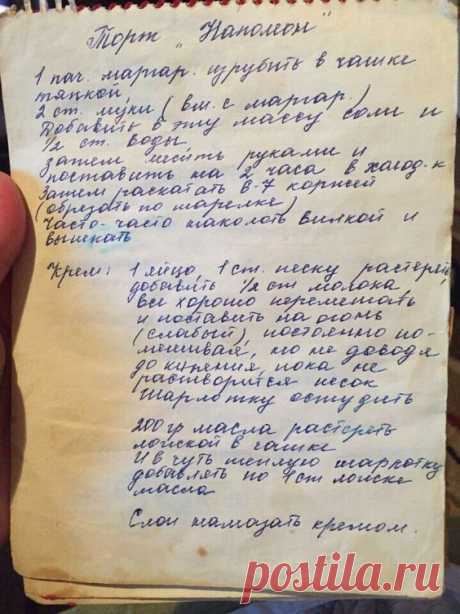 Торт „Наполеон"
1 пач. маргар. изрубить в чашке
тяпкой,
2 ст. муки (вм. с маргар.)
Добавить в эту массу соли и
1/2 ст. воды,
затем месить руками и
поставить на 2 часа в холод-к
Затем раскатать 6-7 коржей
(обрезать по тарелке)
Часто-часто наколоть вилкой и
выпекать
Крем: 1 яйцо, 1 ст. песку растереть,
добавить 1/2 ст молока,
все хорошо перемешать
и поставить на огонь
(слабый), постоянно по-
мешивая, но не доводя
до кипения, пока не
растворится песок
Шарлотку остудить
200 гр масла растереть
ложкой в чашке
И в чуть теплую шарлотку
добавлять по 1 ст ложке
масла
Слои намазать кремом.
postila.ru